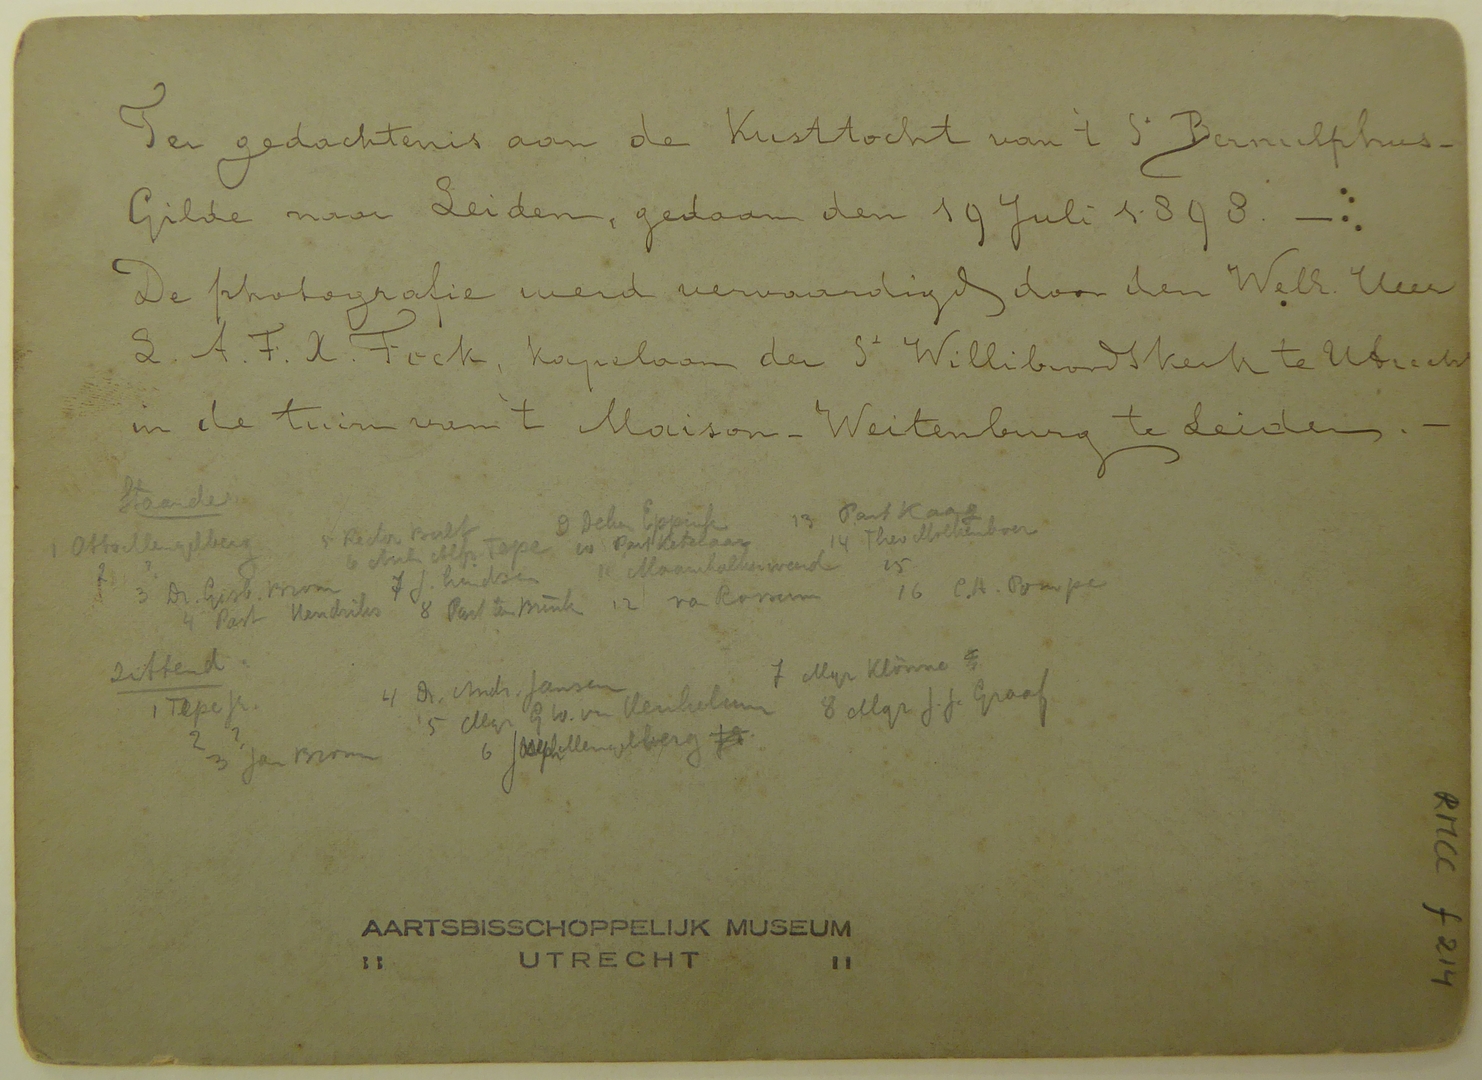 Ter gedachtenis aan de Kusttocht van 't St Bernulphus-
Gilde naar Leiden, gedaan den 19 Juli 1898. —
De photografie werd vervaardigd door den WelE. Heer
L. A. F. X. Fock, kapelaan der St Willibrordskerk te Utrecht
in de tuin van 't Maison-Weitenburg te Leiden. —
Staande
1 Otto Mengelberg
2 ?
3 Dr. Gisb. Brom
4 Past Hendriks
5 Rector
6 Arch Alfr. Tepe
7 J. Lindsen
8 Past ten Brink
9 Deken Eppink
10 Past Ketelaar
11
12 van Rossum
13 Past Kaag
14 Theo Molkenboer
15
16 C.A. Pompe
Zittend
1 Tepe jr.
2 ?
3 Jan Brom
4 Dr. Andr. Jansen
5 Mgr G.W. van Heukelum
6 Joseph Mengelberg
7 Mgr Klönne
8 Mgr J.J. Graaf
AARTSBISSCHOPPELIJK MUSEUM
UTRECHT
RMCC f 214